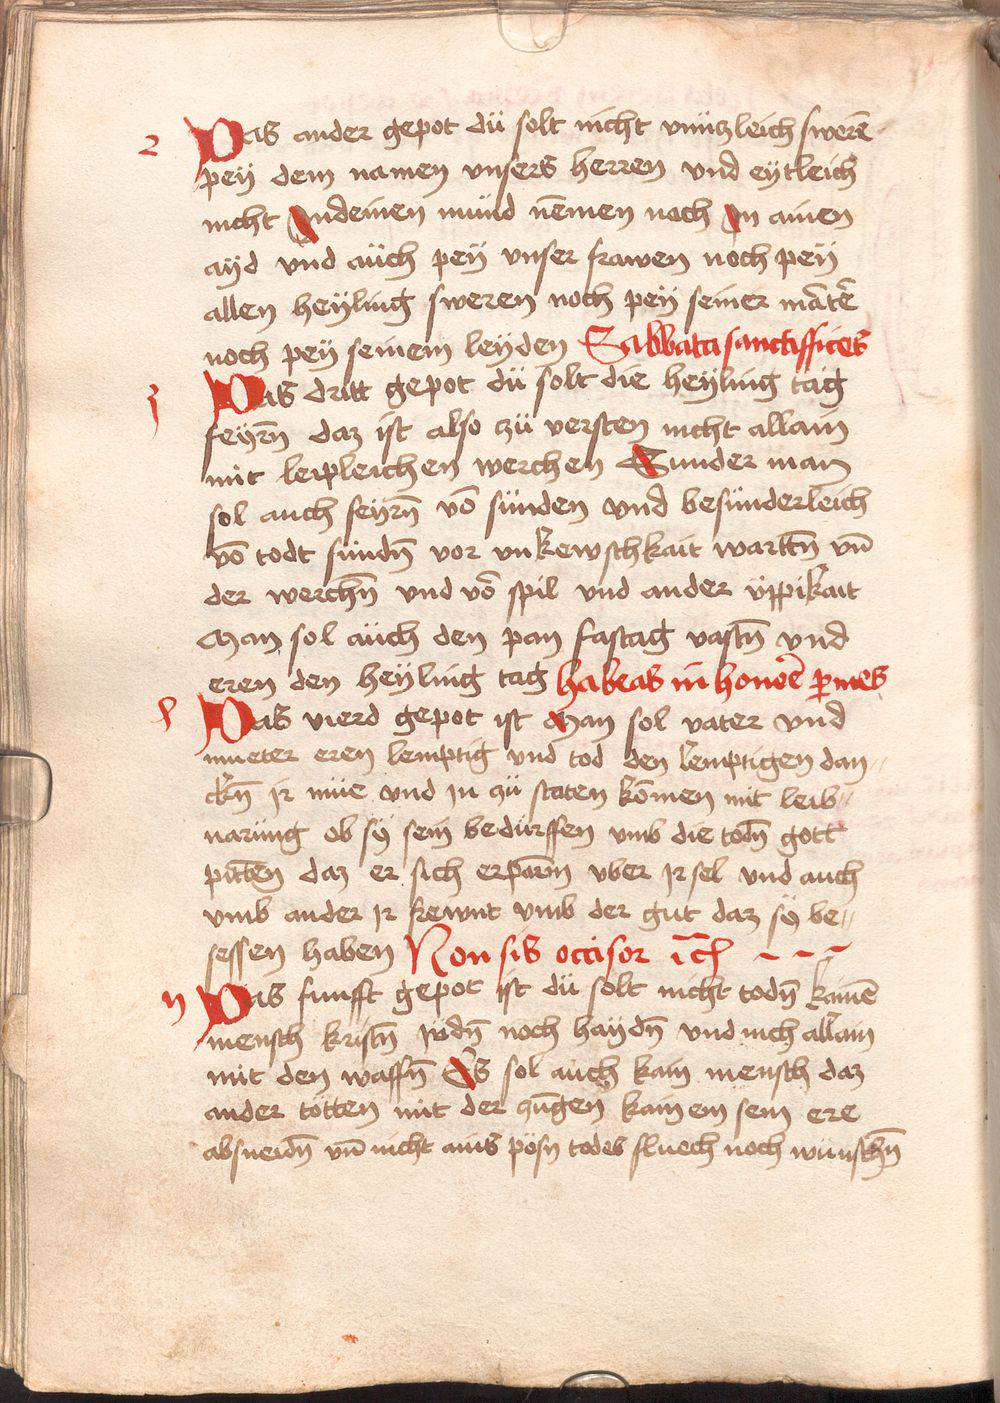 2 Das ander gepot dü solt nicht vnüczleich swerē
peÿ dem namen vnsers herren vnd eÿtleich
nicht Jn deinen münd nēmen noch Jn ainen
aÿd vnd aüch peÿ vnser frawen noch peÿ
allen heÿling sweren noch peÿ seiner mātē
noch peÿ seinem leÿden Sabbata sanctiffices
3 Das dritt gepot dü solt die heÿling tag
feÿrn̄ daz ist also zü versten nicht allain
mit leipleichen werchen Sunder man
sol auch feÿrn̄ vō sünden vnd besünderleich
vō todt sündn̄ vor vnkewschkait wartn̄ vn̄
der werchn̄ vnd vō spil vnd ander üppikait
Man sol aüch den pan fastag vastn̄ vnd
eren den heÿling tag habeas in honoē p̄mēs
4 Das vierd gepot ist Man sol vater vnd
mueter eren lemptig vnd tod den lemptigen dan//
ckn̄ ir müe vnd in zü staten kōmen mit leib//
narüng ob sÿ sein bedürffen vmb die todn̄ gott
pittēn daz er sich erparm̄ vber ir sel vnd auch
vmb ander ir frewnt vmb der gut daz sÿ be//
sessen haben Non sis occisor
5 Das funfft gepot ist dü solt nicht todn̄ kainē
mensch kristn̄ judn̄ noch haÿdn̄ vnd nich allain
mit den waffn̄ Es sol auch kain mensch daz
ander tötten mit der zūgen kainem sein ere
absneidn̄ vn̄ nicht auis pösn̄ todes fluech noch wünschn̄